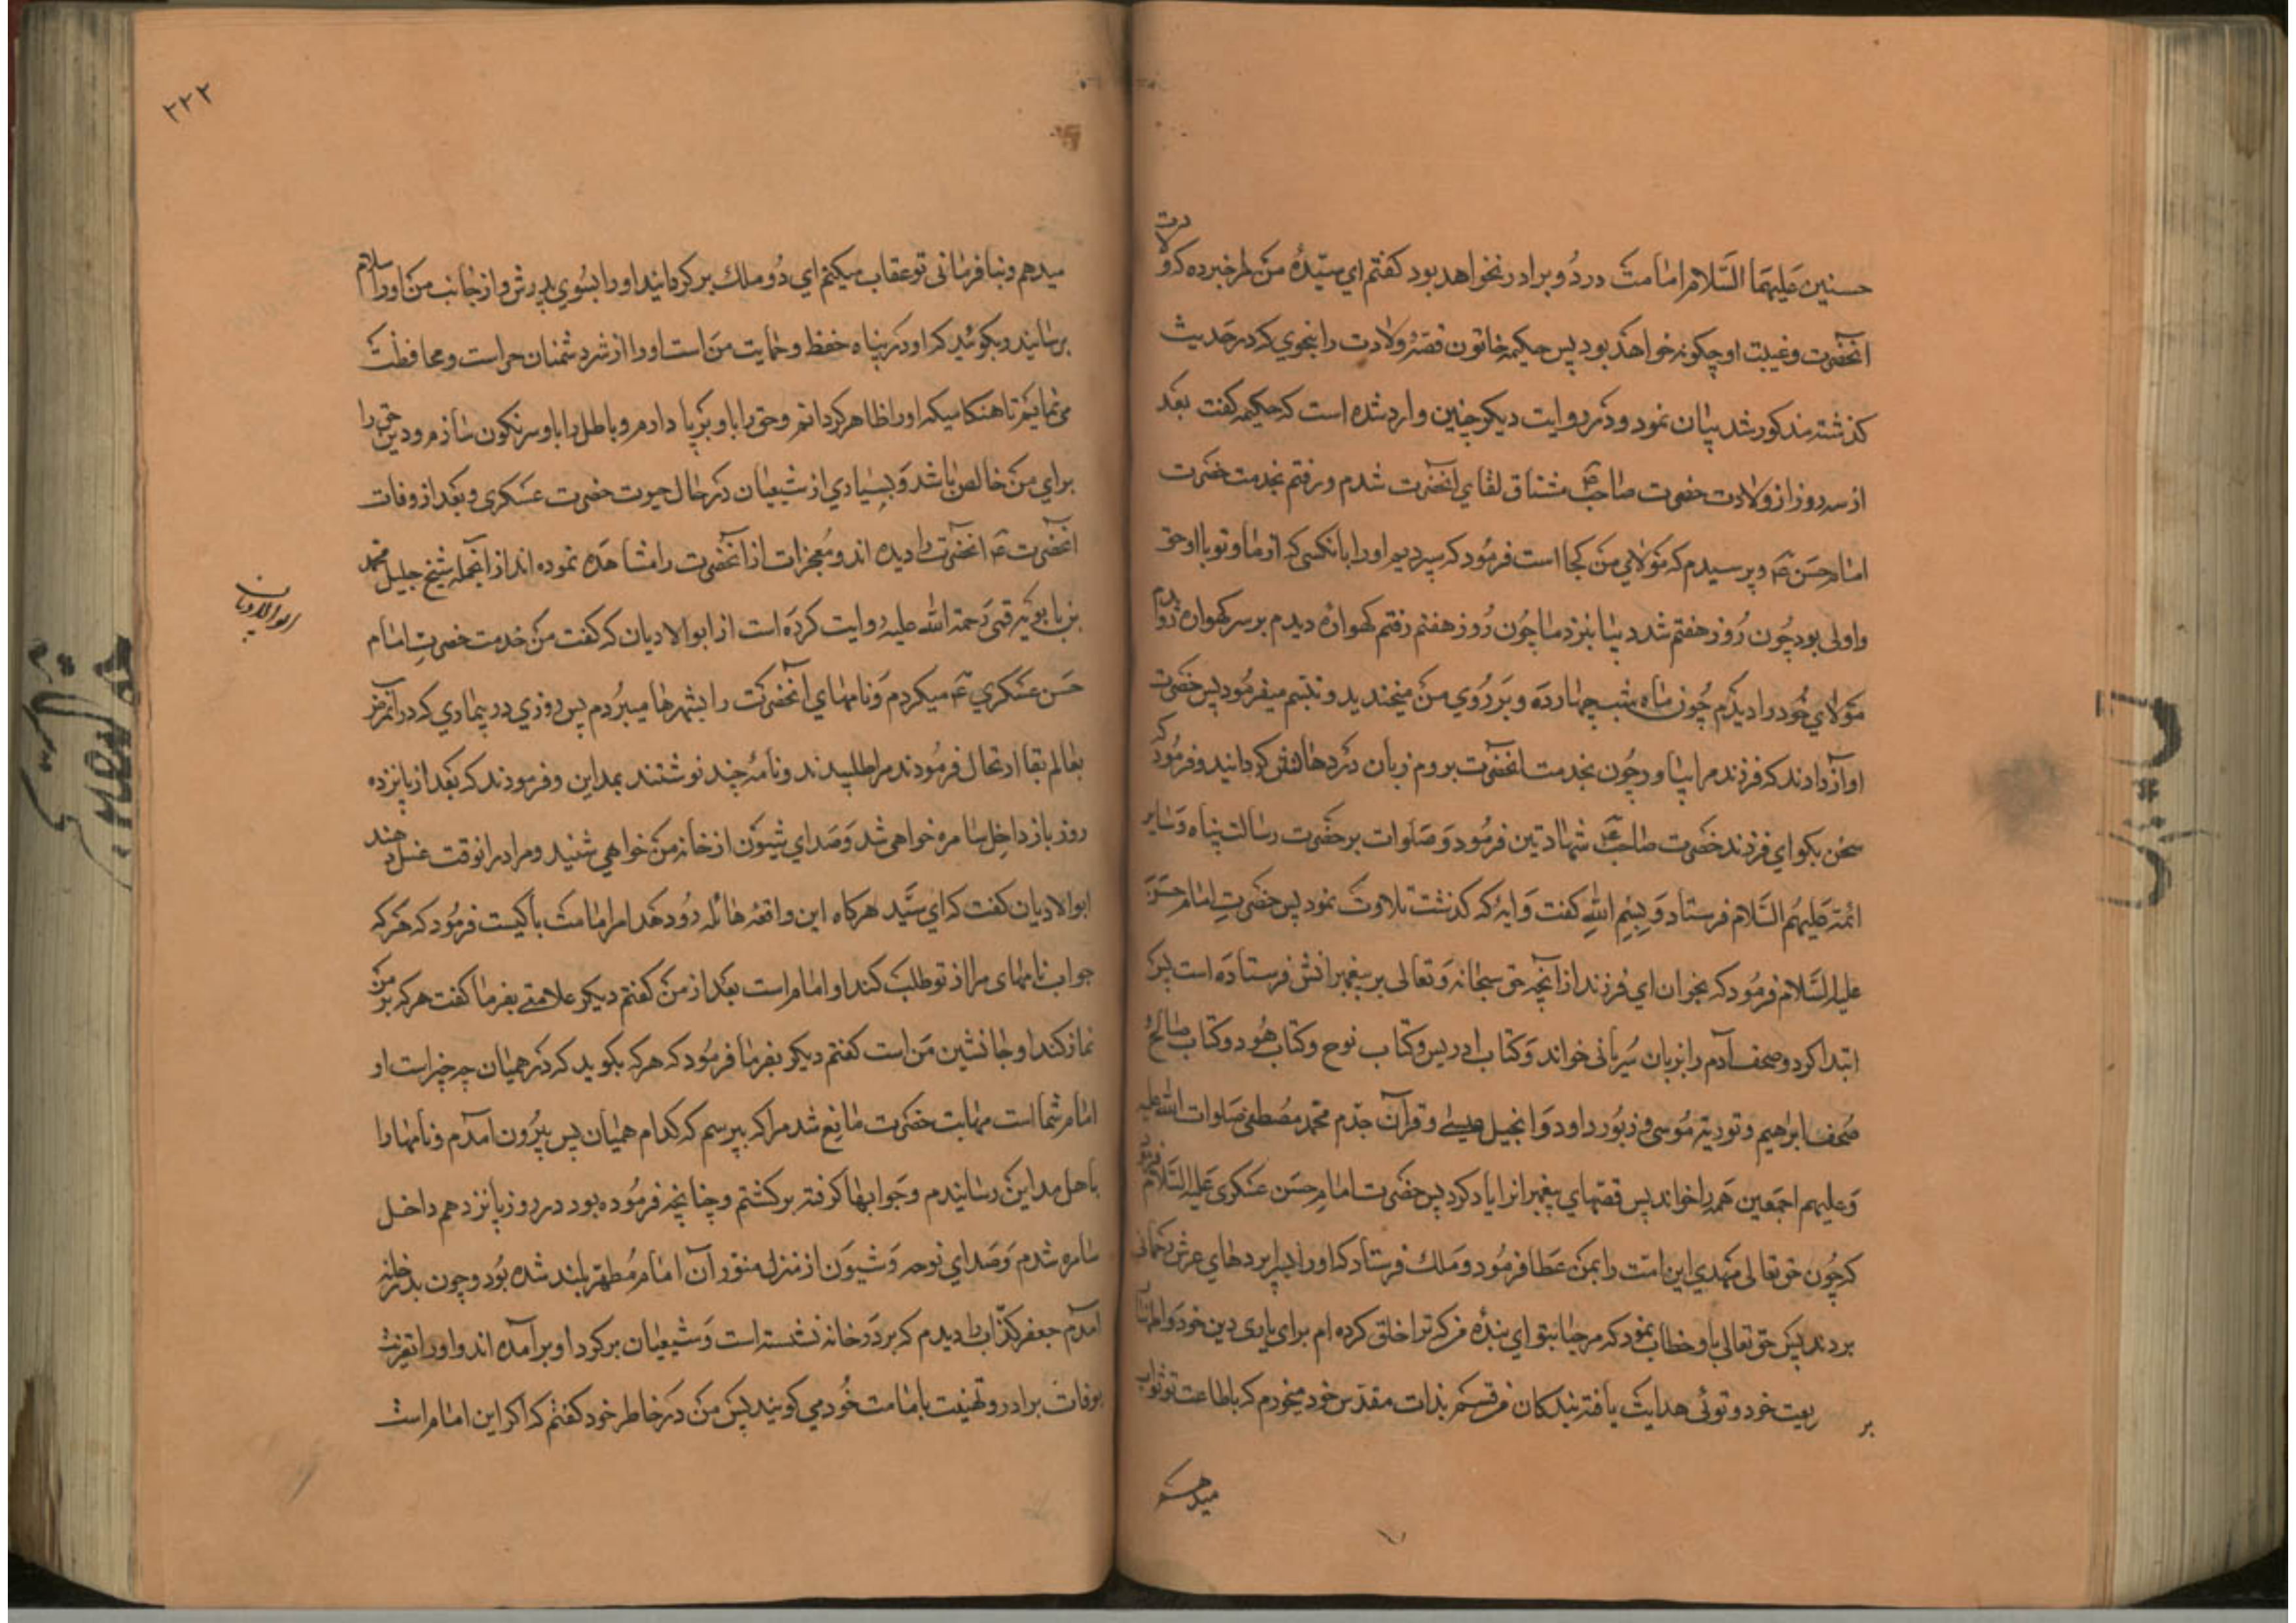 حسنین علیهما السلام امامت در دو برادر نخواهد بود کفتم ای سیّدهٔ من مرا خبر ده که ولادت
انحضرت و غیبت او چکونه خواهد بود پس حکیمه خاتون قصّهٔ ولادت را بنحوی که در حدیث
کذشته مذکور شد بیان نمود و در روایت دیکر چنین وارد شده است که حکیمه کفت بعد
از سه روز از ولادت حضرت صاحب ع مشتاق لقای انحضرت شدم و رفتم بخدمت حضرت
امام حسن ع و پرسیدم که مولای من کجا است فرمود که سپردیم او را بانکسی که از ما و تو باو احق
و اولی بود چون روز هفتم شد بیا بنزد ما چون روز هفتم رفتم کهوارهٔ دیدم بر سر کهواره دویدم
مولای خود را دیدم چون ماه شب چهارده و بر روی من میخندید و تبسم میفرمود پس حضرت
اواز دادند که فرزند مرا بیاور چون بخدمت انحضرت بردم زبان در دهانش کردانید و فرمود که
سخن بکو ای فرزند حضرت صاحب ع شهادتین فرمود و صلوات بر حضرت رسالت پناه و سایر
ائمه علیهم السلام فرستاد و بسم الله کفت و ایهٔ که کذشت تلاوت نمود پس حضرت امام حسن
علیه السلام فرمود که بخوان ای فرزند از آنچه حق سبحانه و تعالی بر پیغمبرانش فرستاده است پس
ابتدا کرد و صحف آدم را بزبان سریانی خواند و کتاب ادریس و کتاب نوح و کتاب هود و کتاب صالح و
صحف ابرهیم و توریة موسی و زبور داود و انجیل عیسی و قرآن جدم محمد مصطفی صلوات الله علیه
و علیهم اجمعین همه را خواند پس قصهای پیغمبرانرا یاد کرد پس حضرت امام حسن عسکری علیه السلام فرمود
که چون حق تعالی مهدی این امت را بمن عطا فرمود دو ملک فرستاد که او را بسراپردهای عرش رحمانی
بردند پس حق تعالی باو خطاب نمود که مرحبا بتو ای بندهٔ من که ترا خلق کرده ام برای یاری دین خود و اظهار
ریعت خود و توئی هدایت یافته بندکان من قسم بذات مقدس خود میخورم که باطاعت تو ثواب
میدهم
۲۲۲
میدهم و بنافرمانی تو عقاب میکنم ای دو ملک بر کردانید او را بسوی پدرش و از جانب من او را سلام
برسانید و بکوئید که او در پناه حفظ و حمایت من است او را از شر دشمنان حراست و محافظت
می نمایم تا هنکامیکه او را ظاهر کردانم و حق را باو بر پا دارم و باطل را باو سرنکون سازم و دین حق را
برای من خالص باشد و بسیاری از شیعیان در حال حیوت حضرت عسکری و بعد از وفات
انحضرت ع انحضرت را دیده اند و معجزات از آنحضرت را مشاهده نموده اند از انجمله شیخ جلیل محمد
بن بابویه قمی رحمة الله علیه روایت کرده است از ابو الادیان که کفت من خدمت حضرت امام
ابو الادیان
حسن عسکری ع میکردم و نامهای آنحضرت را بشهرها میبردم پس روزی در بیماری که در آنمرض
بعالم بقا ارتحال فرمودند مرا طلبیدند و نامهٔ چند نوشتند بمداین و فرمودند که بعد از پانزده
روز باز داخل سامره خواهی شد و صدای شیون از خانه من خواهی شنید و مرا درانوقت غسل دهند
ابوالادیان کفت که ای سیّد هرکاه این واقعهٔ هائله رو دهد امر امامت با کیست فرمود که هر که
جواب نامهای مرا از تو طلب کند او امام است بعد از من کفتم دیکر علامتی بفرما کفت هر که بر من
نماز کند او جانشین من است کفتم دیکر بفرما فرمود که هر که بکوید که در همیان چه چیز است او
امام شما است مهابت حضرت مانع شد مرا که بپرسم که کدام همیان پس بیرون آمدم و نامها را
باهل مداین رسانیدم و جوابها کرفته برکشتم و چنانچه فرموده بود در روز پانزدهم داخل
سامره شدم و صدای نوحه و شیون از منزل منور آن امام مطهر بلند شده بود و چون بدر خانه
آمدم جعفر کذّاب را دیدم که بر در خانه نشسته است و شیعیان بر کرد او بر آمده اند و او را تعزیت
بوفات برادر و تهنیت بامامت خود می کویند پس من در خاطر خود کفتم که اکر این امام است